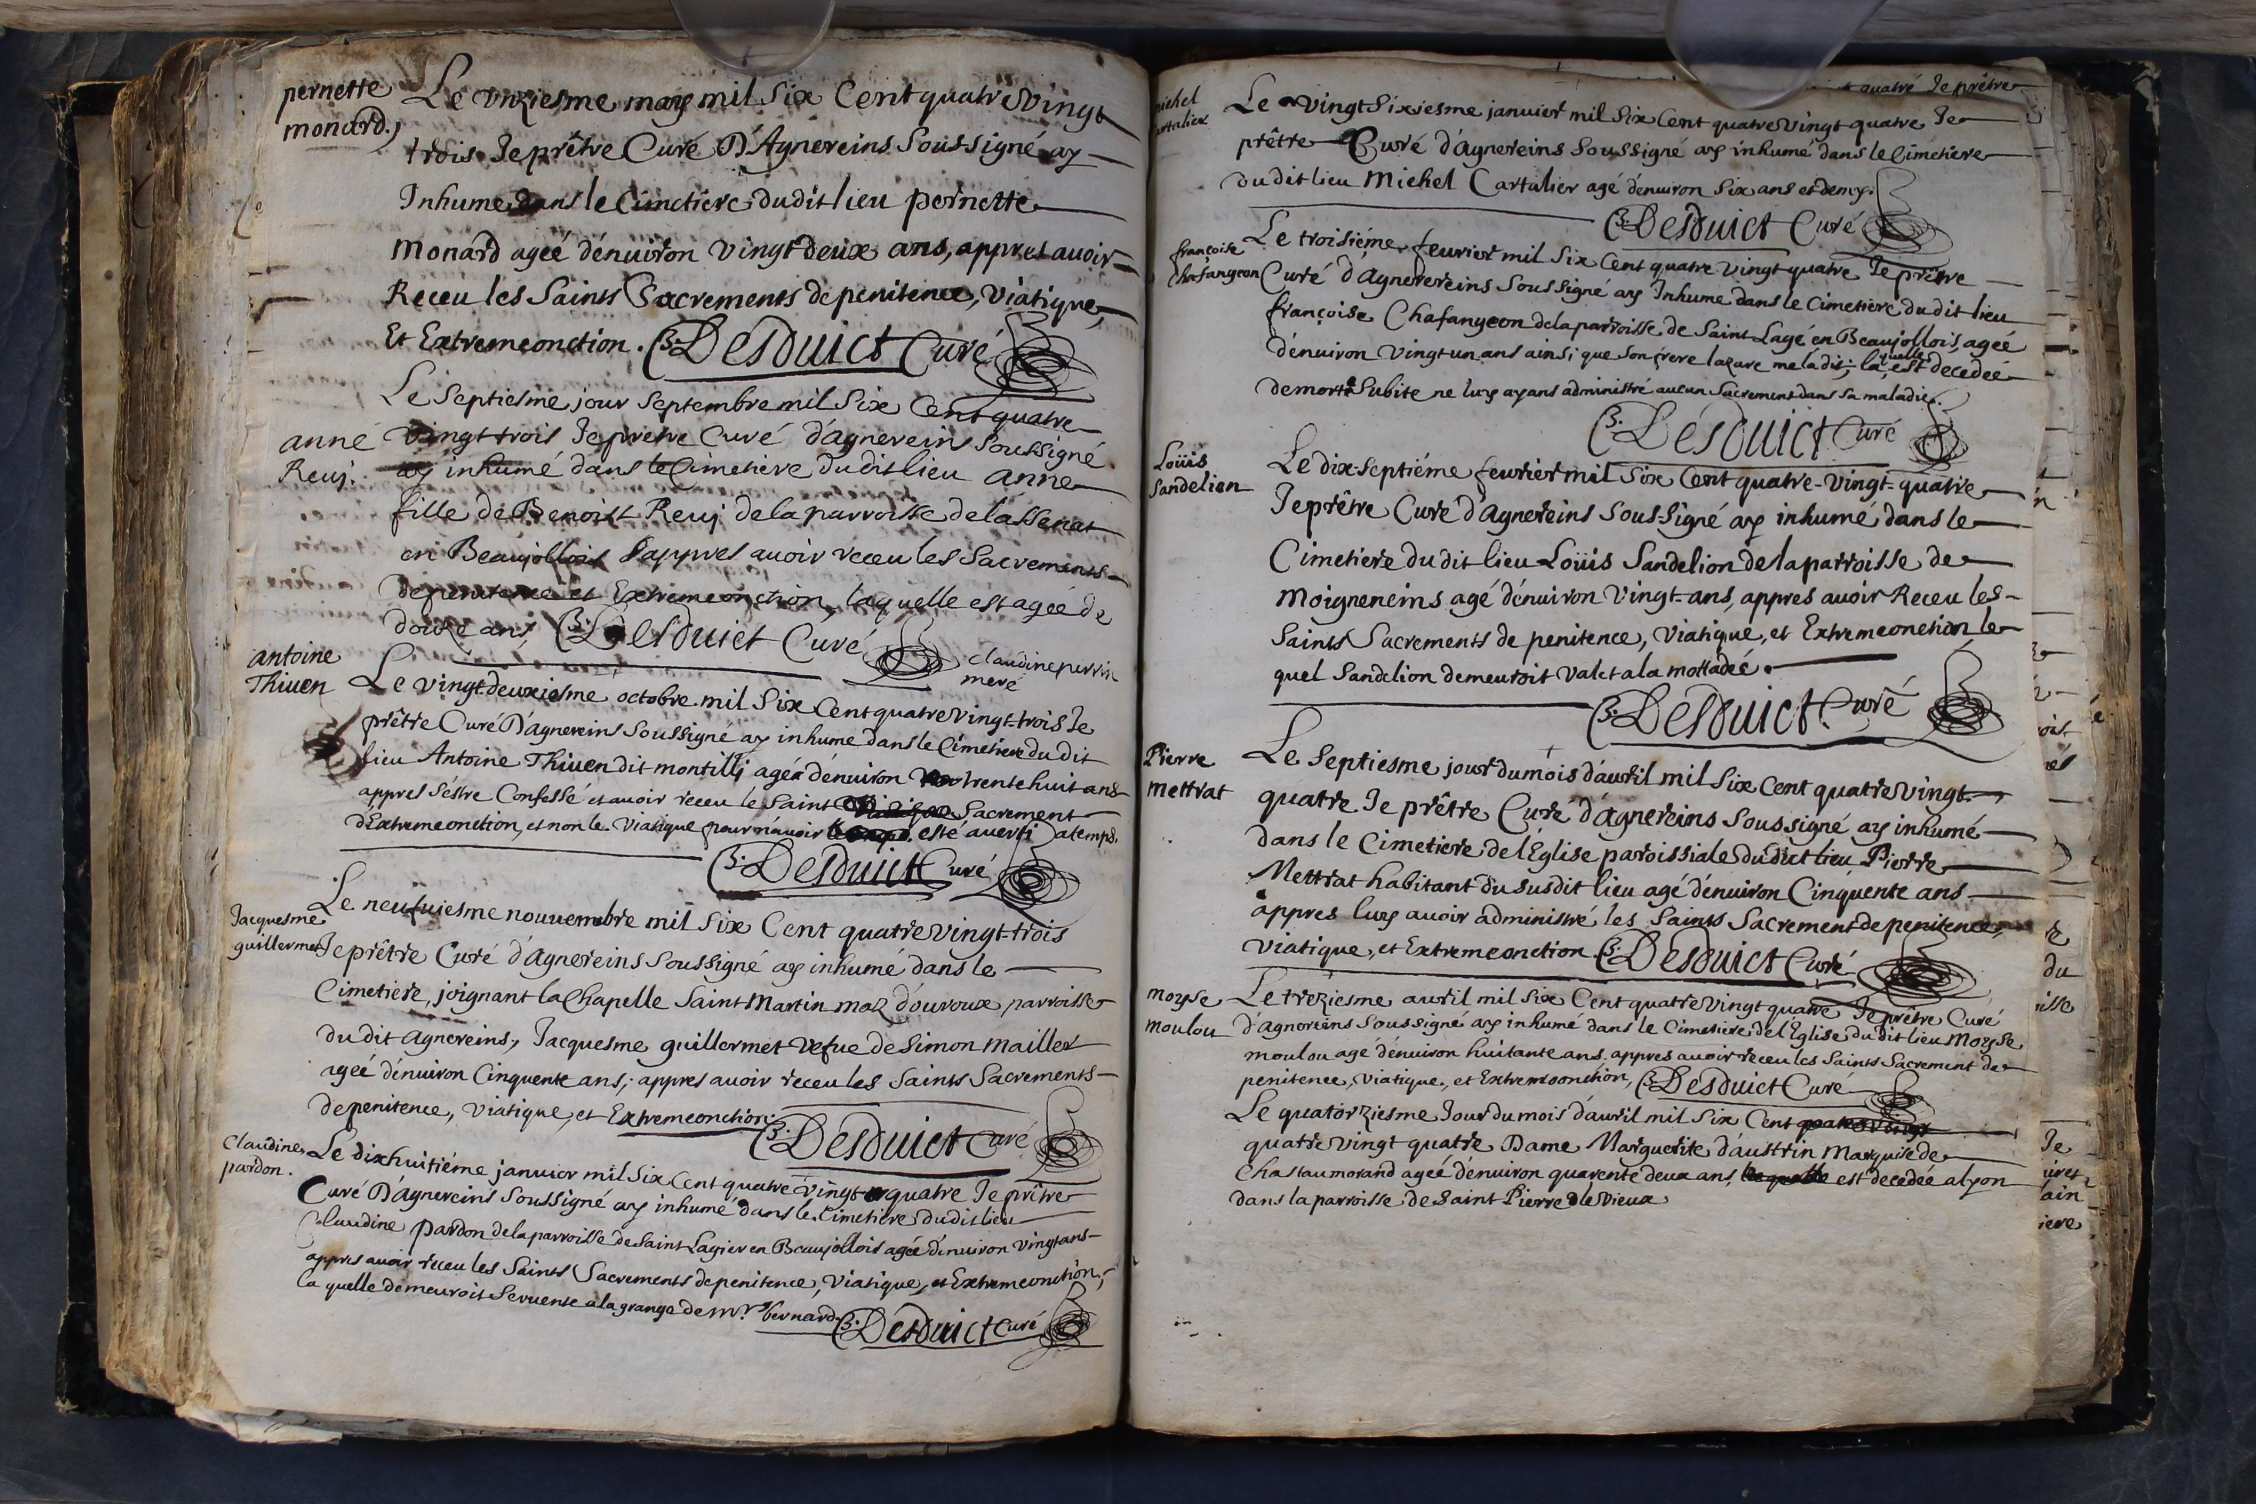 pernette
monard.
Le vnziesme mars mil Six Cent quatre vingt
trois Je prêtre Curé D'Agnereins Soussigné ay
Inhumé dans le Cimetiere du dit lieu pernette
monard ageé dénuiron vingt deux ans, appres auoir
Receu les Saints Sacrements de penitence, Viatique,
Et Extremeonction. Desduict Curé
anne
Reuj.
Le Septiesme jour Septembre mil Six Cent quatre
vingt trois Je pretre Curé d'agnerein Soussigné
ay inhumé dans le Cimetiere du dit lieu anne
fille de Benoist Reuj de la parroisse de lassenat
en Beaujollois appres auoir receu les Sacrements
de penitence et Extremeonction, laquelle est ageé de
douze ans Desduict Curé
claudine perrin
mere
antoine
Thiuen
Le vingt deuxiesme octobre mil Six Cent quatre vingt-trois Je
prêtre Curé D'agnereins Soussigné ay inhumé dans le Cimetiere du dit
lieu Antoine Thiuen dit montillj agé dénuiron trente huit ans
appres s'éstre Confessé et auoir receu le Saint Sacrement
d'Extremeonction, et non le Viatique pour n'auoir esté auerti atemps.
Desduict Curé
Jacquesme
guillermet
Le neufuiesme nouuembre mil Six Cent quatre vingt-trois
Je prêtre Curé d'Agnereins Soussigné ay inhumé dans le
Cimetiere, joignant la Chapelle Saint Martin maz d'ouroux, parroisse
du dit Agnereins, Jacquesme guillermet vefue de Simon mailler
ageé dénuiron Cinquente ans, appres auoir receu les Saints Sacrements
de penitence, viatique, et Extremeonction.
Desduict Curé
Claudine
pardon.
Le dixhuitiéme januier mil Six Cent quatre vingt quatre Je prêtre
Curé D'Agnereins Soussigné ay inhumé dans le Cimetiere du dit lieu
Claudine pardon de la parroisse de Saint Lagier en Beaujollois ageé dénuiron vingt ans
appres auoir receu les Saints Sacrements de penitence, Viatique, et Extremeonction,
la quelle demeuroit Seruente a la grange de mr. bernard. Desduict Curé
quatre Je prêtre
michel
Cartalier
Le vingt Sixiesme januier mil Six Cent quatre vingt quatre Je
prêtre Curé d'agnereins Soussigné ay inhumé dans le Cimetiere
du dit lieu Michel Cartalier agé dénuiron Six ans et demy.
Desduict Curé
françoise
Chafangeon
Le troisiéme feurier mil Six Cent quatre vingt quatre Je prêtre
Curé d'Agnerereins Soussigné ay Inhumé dans le Cimetiere du dit lieu
françoise Chafangeon de la parroisse de Saint Lagé en Beaujollois, ageé
dénuiron vingt un ans ainsi que Son frere lazare me la dit, la quelle est decedeé
de mort Subite ne luy ayans administré aucun Sacrement dans Sa maladie.
Desduict Curé
Loüis
Sandelion
Le dix-Septiéme feurier mil Six Cent quatre-vingt-quatre
Je prêtre Curé d'agnereins Soussigné ay inhumé dans le
Cimetiere du dit lieu Loüis Sandelion de la parroisse de
moigneneins agé dénuiron Vingt-ans, appres auoir Receu les
Saints Sacrements de penitence, Viatique, et Extremeonction, le
quel Sandelion demeuroit Valet a la mottadeé.
Desduict Curé
Pierre
mettrat
Le Septiesme jour du mois d'auril mil Six Cent quatre vingt
quatre Je prêtre Curé d'agnereins Soussigné ay inhumé
dans le Cimetiere de l'Eglise paroissiale du dict lieu, Pierre
Mettrat habitant du susdit lieu agé dénuiron Cinquente ans
appres luy auoir administré les Saints Sacrement de penitence,
viatique, et Extremeonction. Desduict Curé
moyse
moulou
Le treziesme auril mil Six Cent quatre vingt quatre Je prêtre Curé
d'agnereins Soussigné ay inhumé dans le Cimetiere de l'Eglise du dit lieu Moyse
moulou agé dénuiron huitante ans appres auoir receu les Saints Sacrement de
penitence, viatique, et Extremeonction, Desduict Curé
Le quatorziesme Jour du mois d'auril mil Six Cent quatre vingt
quatre vingt quatre Dame Marguerite d'austrin Marquise de
Chastaumorand ageé dénuiron quarente deux ans, est decedée a lyon
dans la parroisse de Saint Pierre le vieux